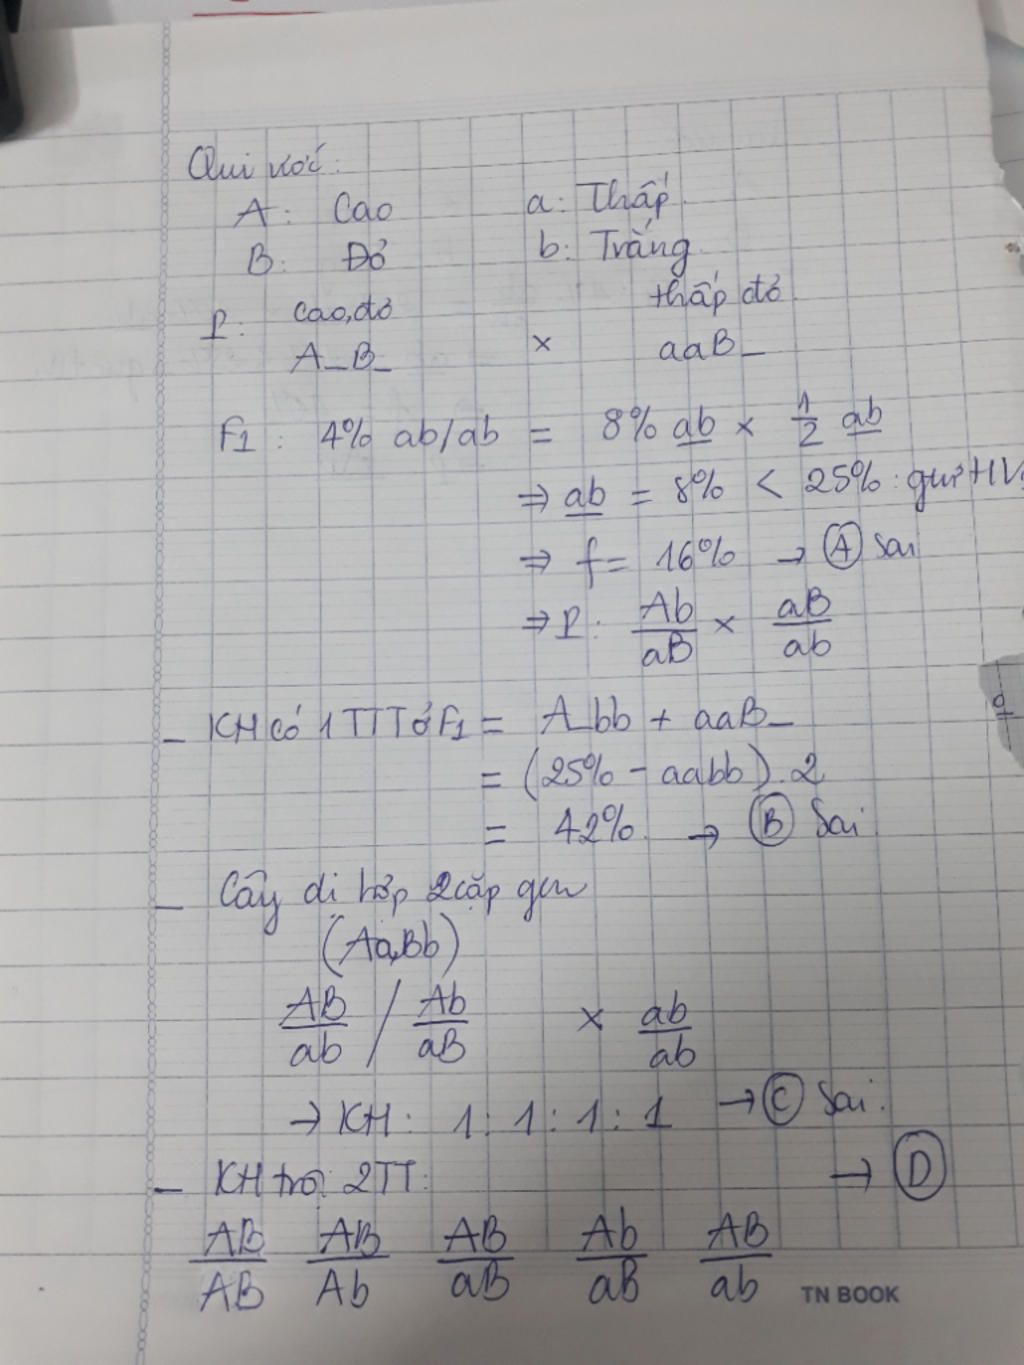 Qui ước:
A: Cao a: Thấp
B: Đỏ b: Trắng
P: cao, đỏ × thấp đỏ
A_B_ aaB_
F1: 4% ab/ab = 8% ab × 1/2 ab
⇒ ab = 8% < 25% : giử HV
⇒ f = 16% → (A) Sai
⇒ P: Ab/aB × aB/ab
_ KH có 1 TTT ở F1 = A_bb + aaB_
= (25% - aabb).2
= 42% → (B) Sai
_ Cây dị hợp 2 cặp gen
(Aa,Bb)
AB/ab / Ab/aB × ab/ab
→ KH: 1:1:1:1 → (C) Sai.
_ KH trội 2TT: → (D)
AB/AB AB/Ab AB/aB Ab/aB AB/ab
TN BOOK